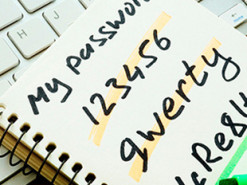 My passwor
123456
qwerty